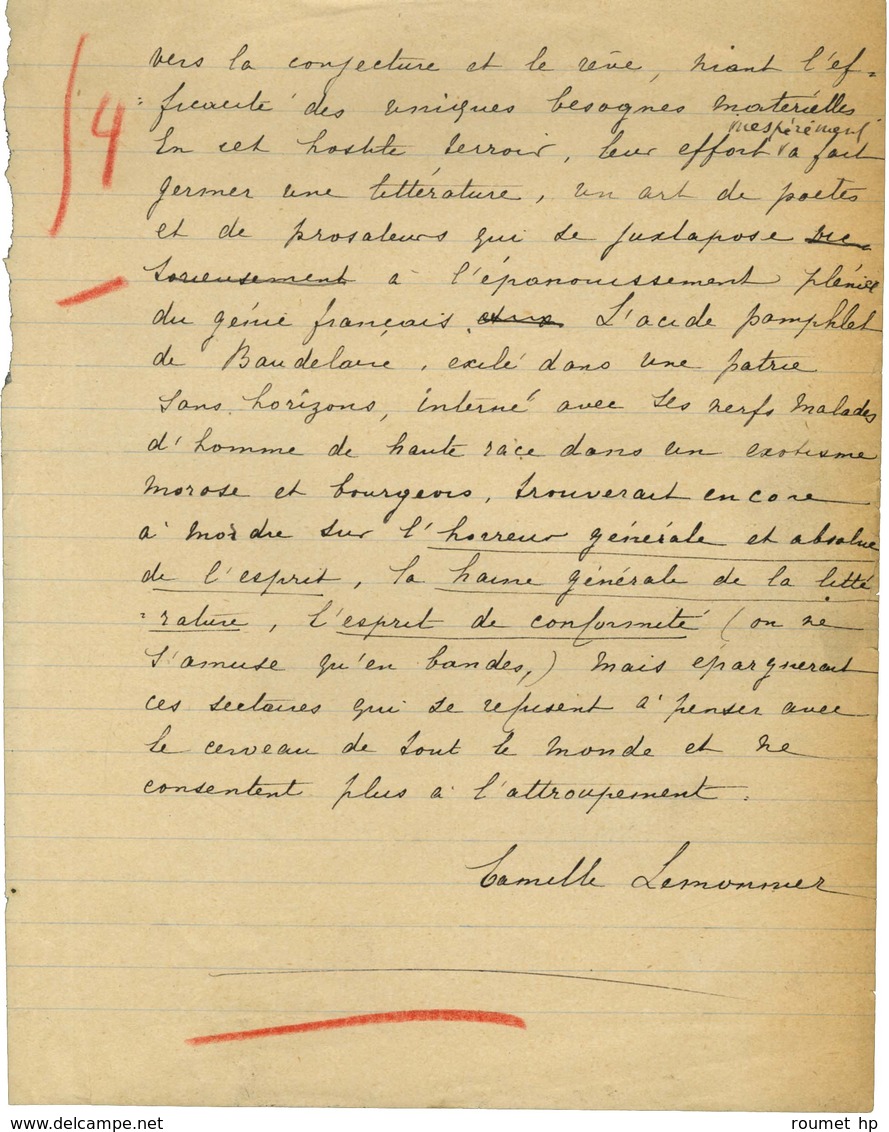 vers la conjecture et le rêve, niant l'ef-
4
-ficacité des uniques besognes matérielles
inespérément
En cet hostile terroir, leur effort a fait
germer une littérature, un art de poètes
et de prosateurs qui se juxtapose vic
torieusement à l'épanouissement plénier
du génie français. L'acide pamphlet
de Baudelaire, exilé dans une patrie
sans horizons, interné avec ses nerfs malades
d'homme de haute race dans un exotisme
morose et bourgeois, trouverait encore
à mordre sur l'horreur générale et absolue
de l'esprit, la haine générale de la litté
-rature, l'esprit de conformité (on ne
s'amuse qu'en bandes,) mais épargnerait
ces sectaires qui se refusent à penser avec
le cerveau de tout le monde et ne
consentent plus à l'attroupement.
Camille Lemonnier
www.delcampe.net
roumet hp